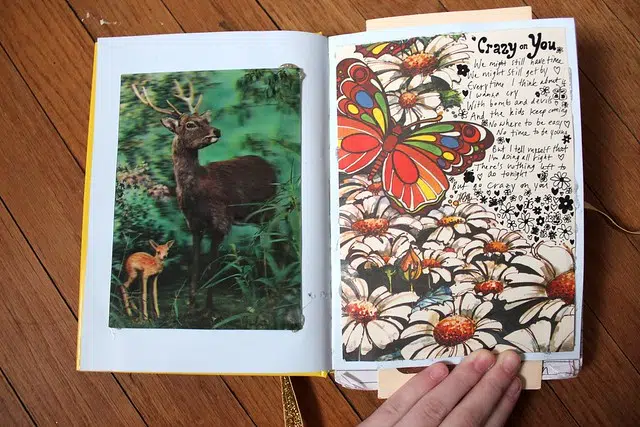 Crazy on You
We might still have time
We might still get by
Everytime I think about it
I wanna cry
With bombs and devils
And the kids keep coming
Nowhere to be easy
No time to be young
But I tell myself that
I'm doing all right
There's nothing left to
do tonight
But go crazy on you